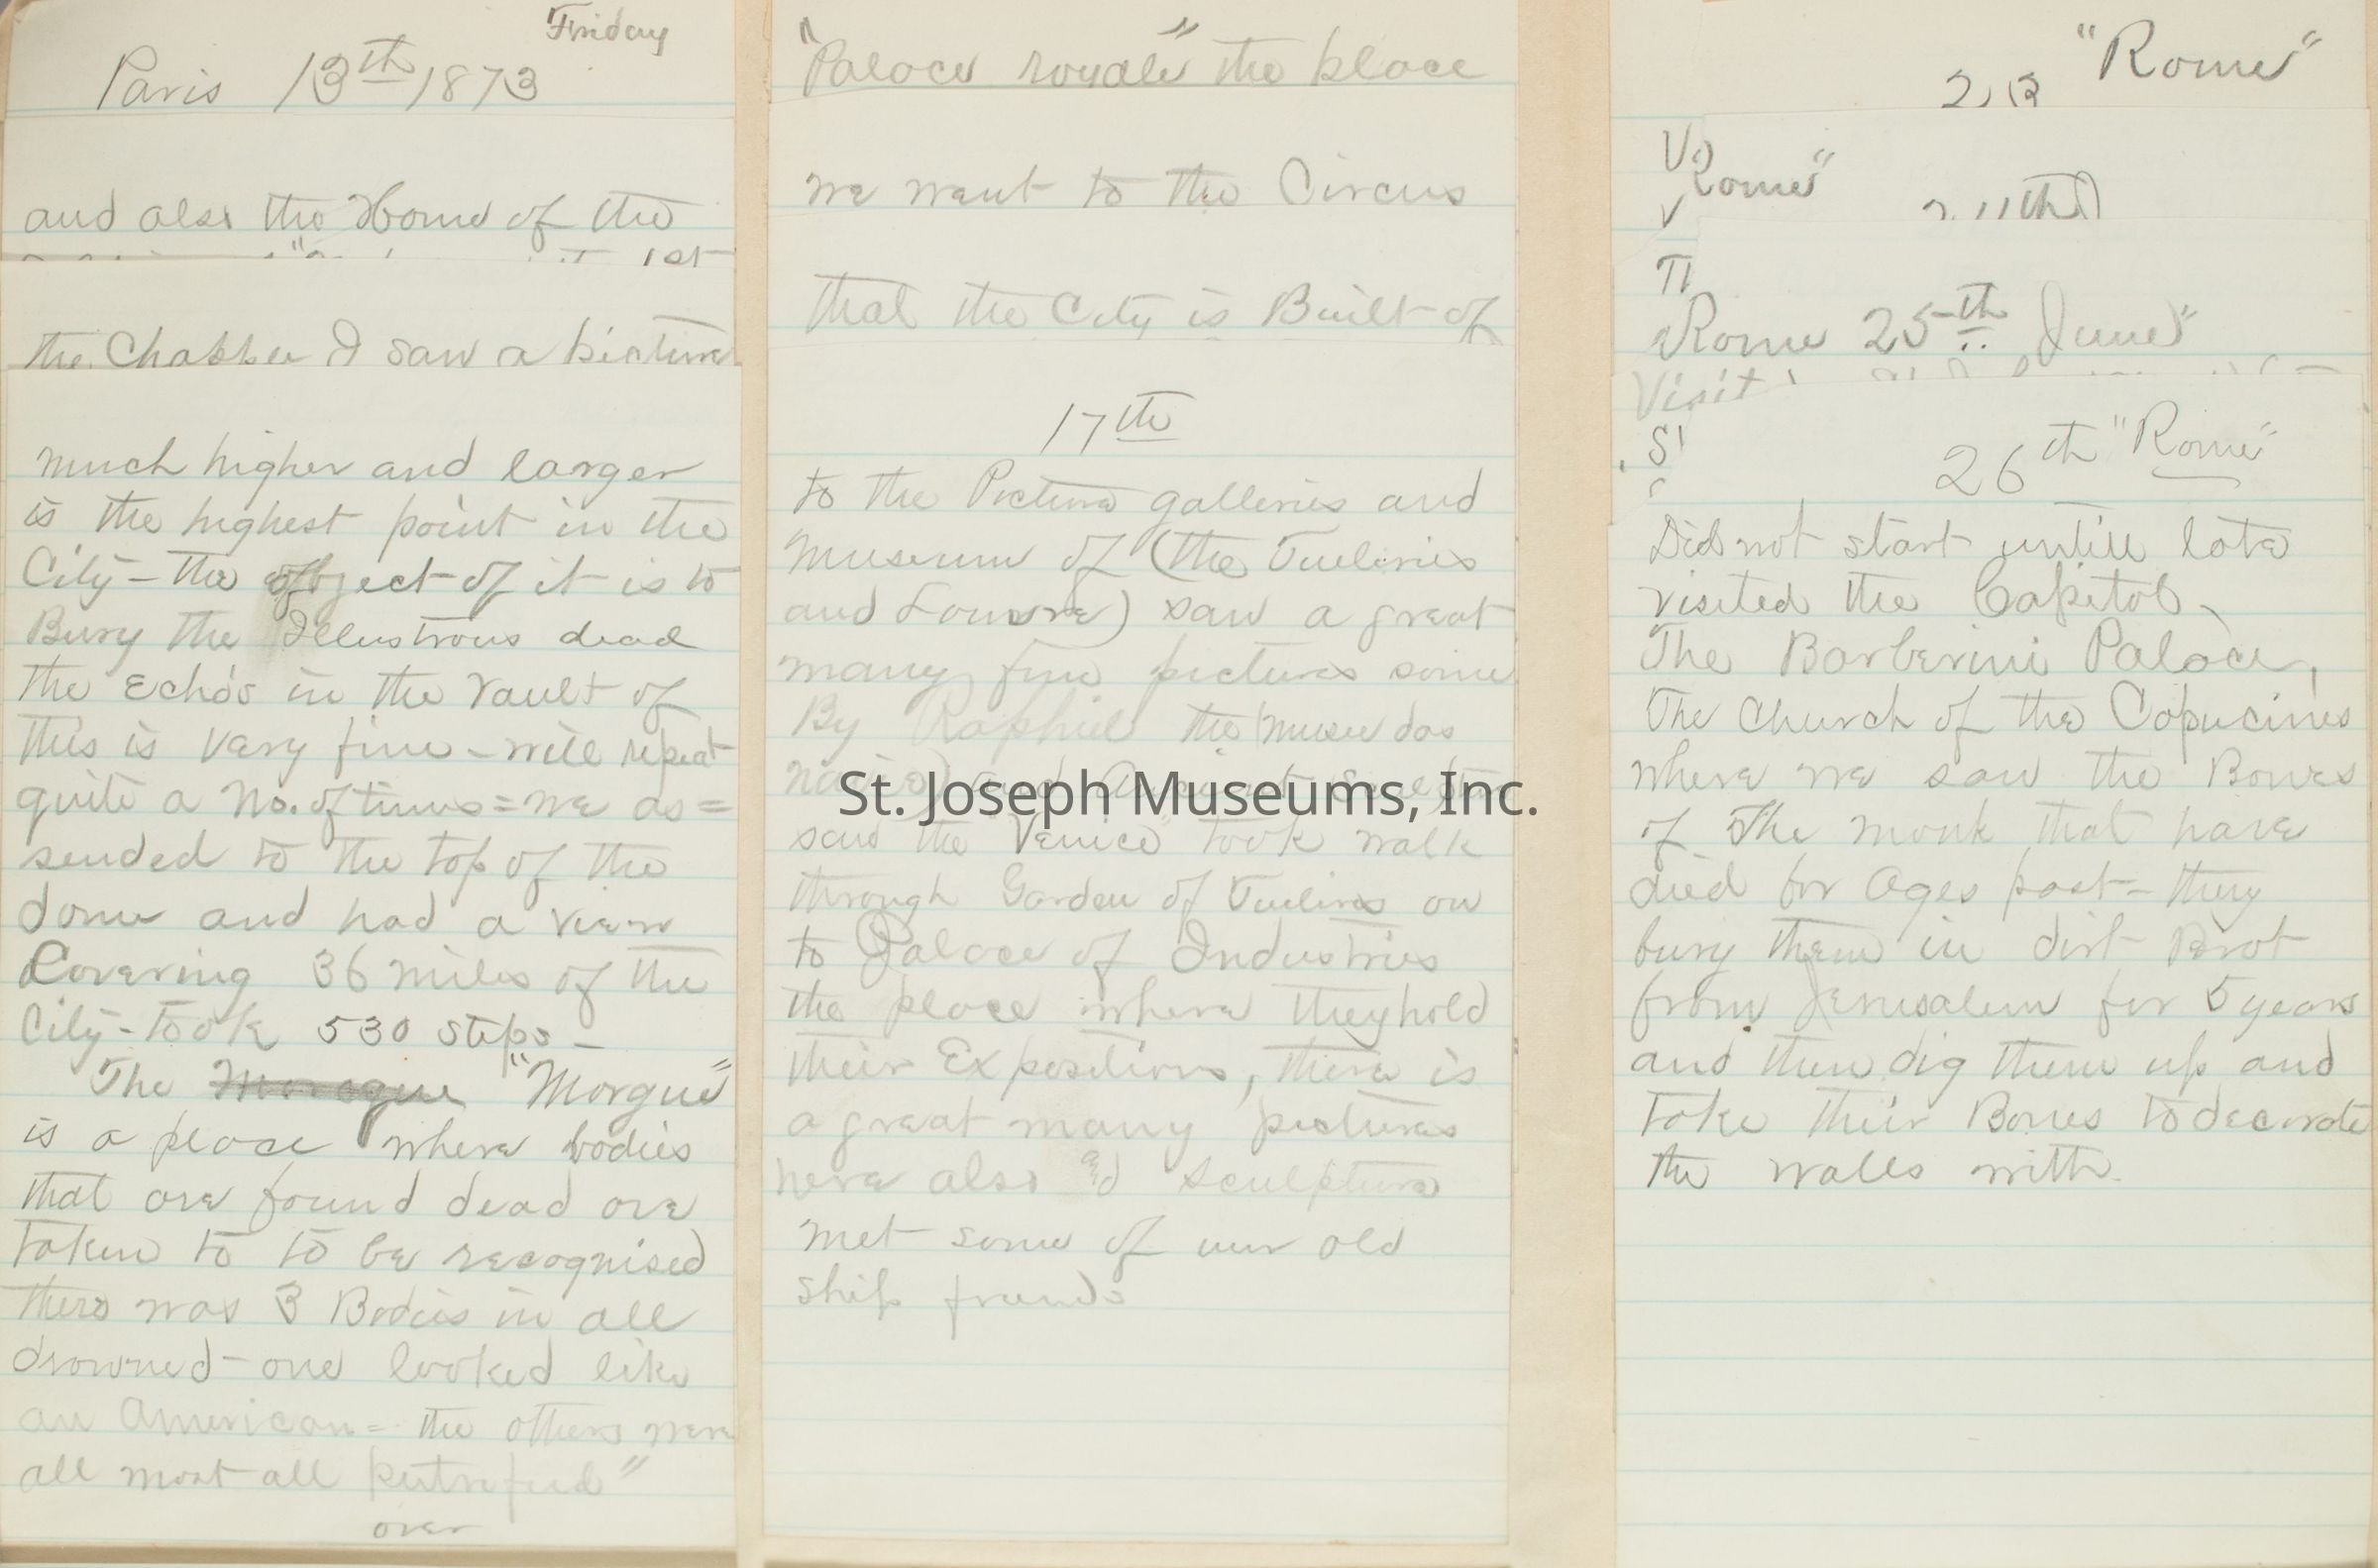 Friday
Paris 13th 1873
and also the Home of the
1st
the Chapple I saw a picture
much higher and larger
is the highest point in the
City - the object of it is to
Bury the Illustrous dead
the Echo's in the vault of
this is very fine - will repeat
quite a No. of times = we as =
sended to the top of the
dome and had a view
Covering 36 miles of the
City - took 530 steps -
The Moregue "Morgue"
is a place where bodies
that are found dead are
taken to to be recognised
there was 3 Bodies in all
drowned - one looked like
an American = the others were
all most all putrefied"
over
"Palace royale" the place
we went to the Circus
that the City is Built of
17th
to the Picture galleries and
Museum of (the Tueleries
and Louvre) saw a great
many fine pictures some
By Raphiel the Musee das
and Ancient
said the "Venice" took walk
through Garden of Tueliries on
to Palace of Industries
the place where they hold
their Expositions, there is
a great many pictures
here also and sculpture
met some of our old
ship friends
St. Joseph Museums, Inc.
"Rome"
23
Rome"
11th
Rome 25th June"
Visit
26th "Rome"
Did not start untill late
visited the Capitol,
The Barberini Palace,
The Church of the Capucines
where we saw the Bones
of The monk that have
died for Ages past - they
bury them in dirt Brot
from Jerusalem for 5 years
and then dig them up and
take their Bones to decorate
the walls with.